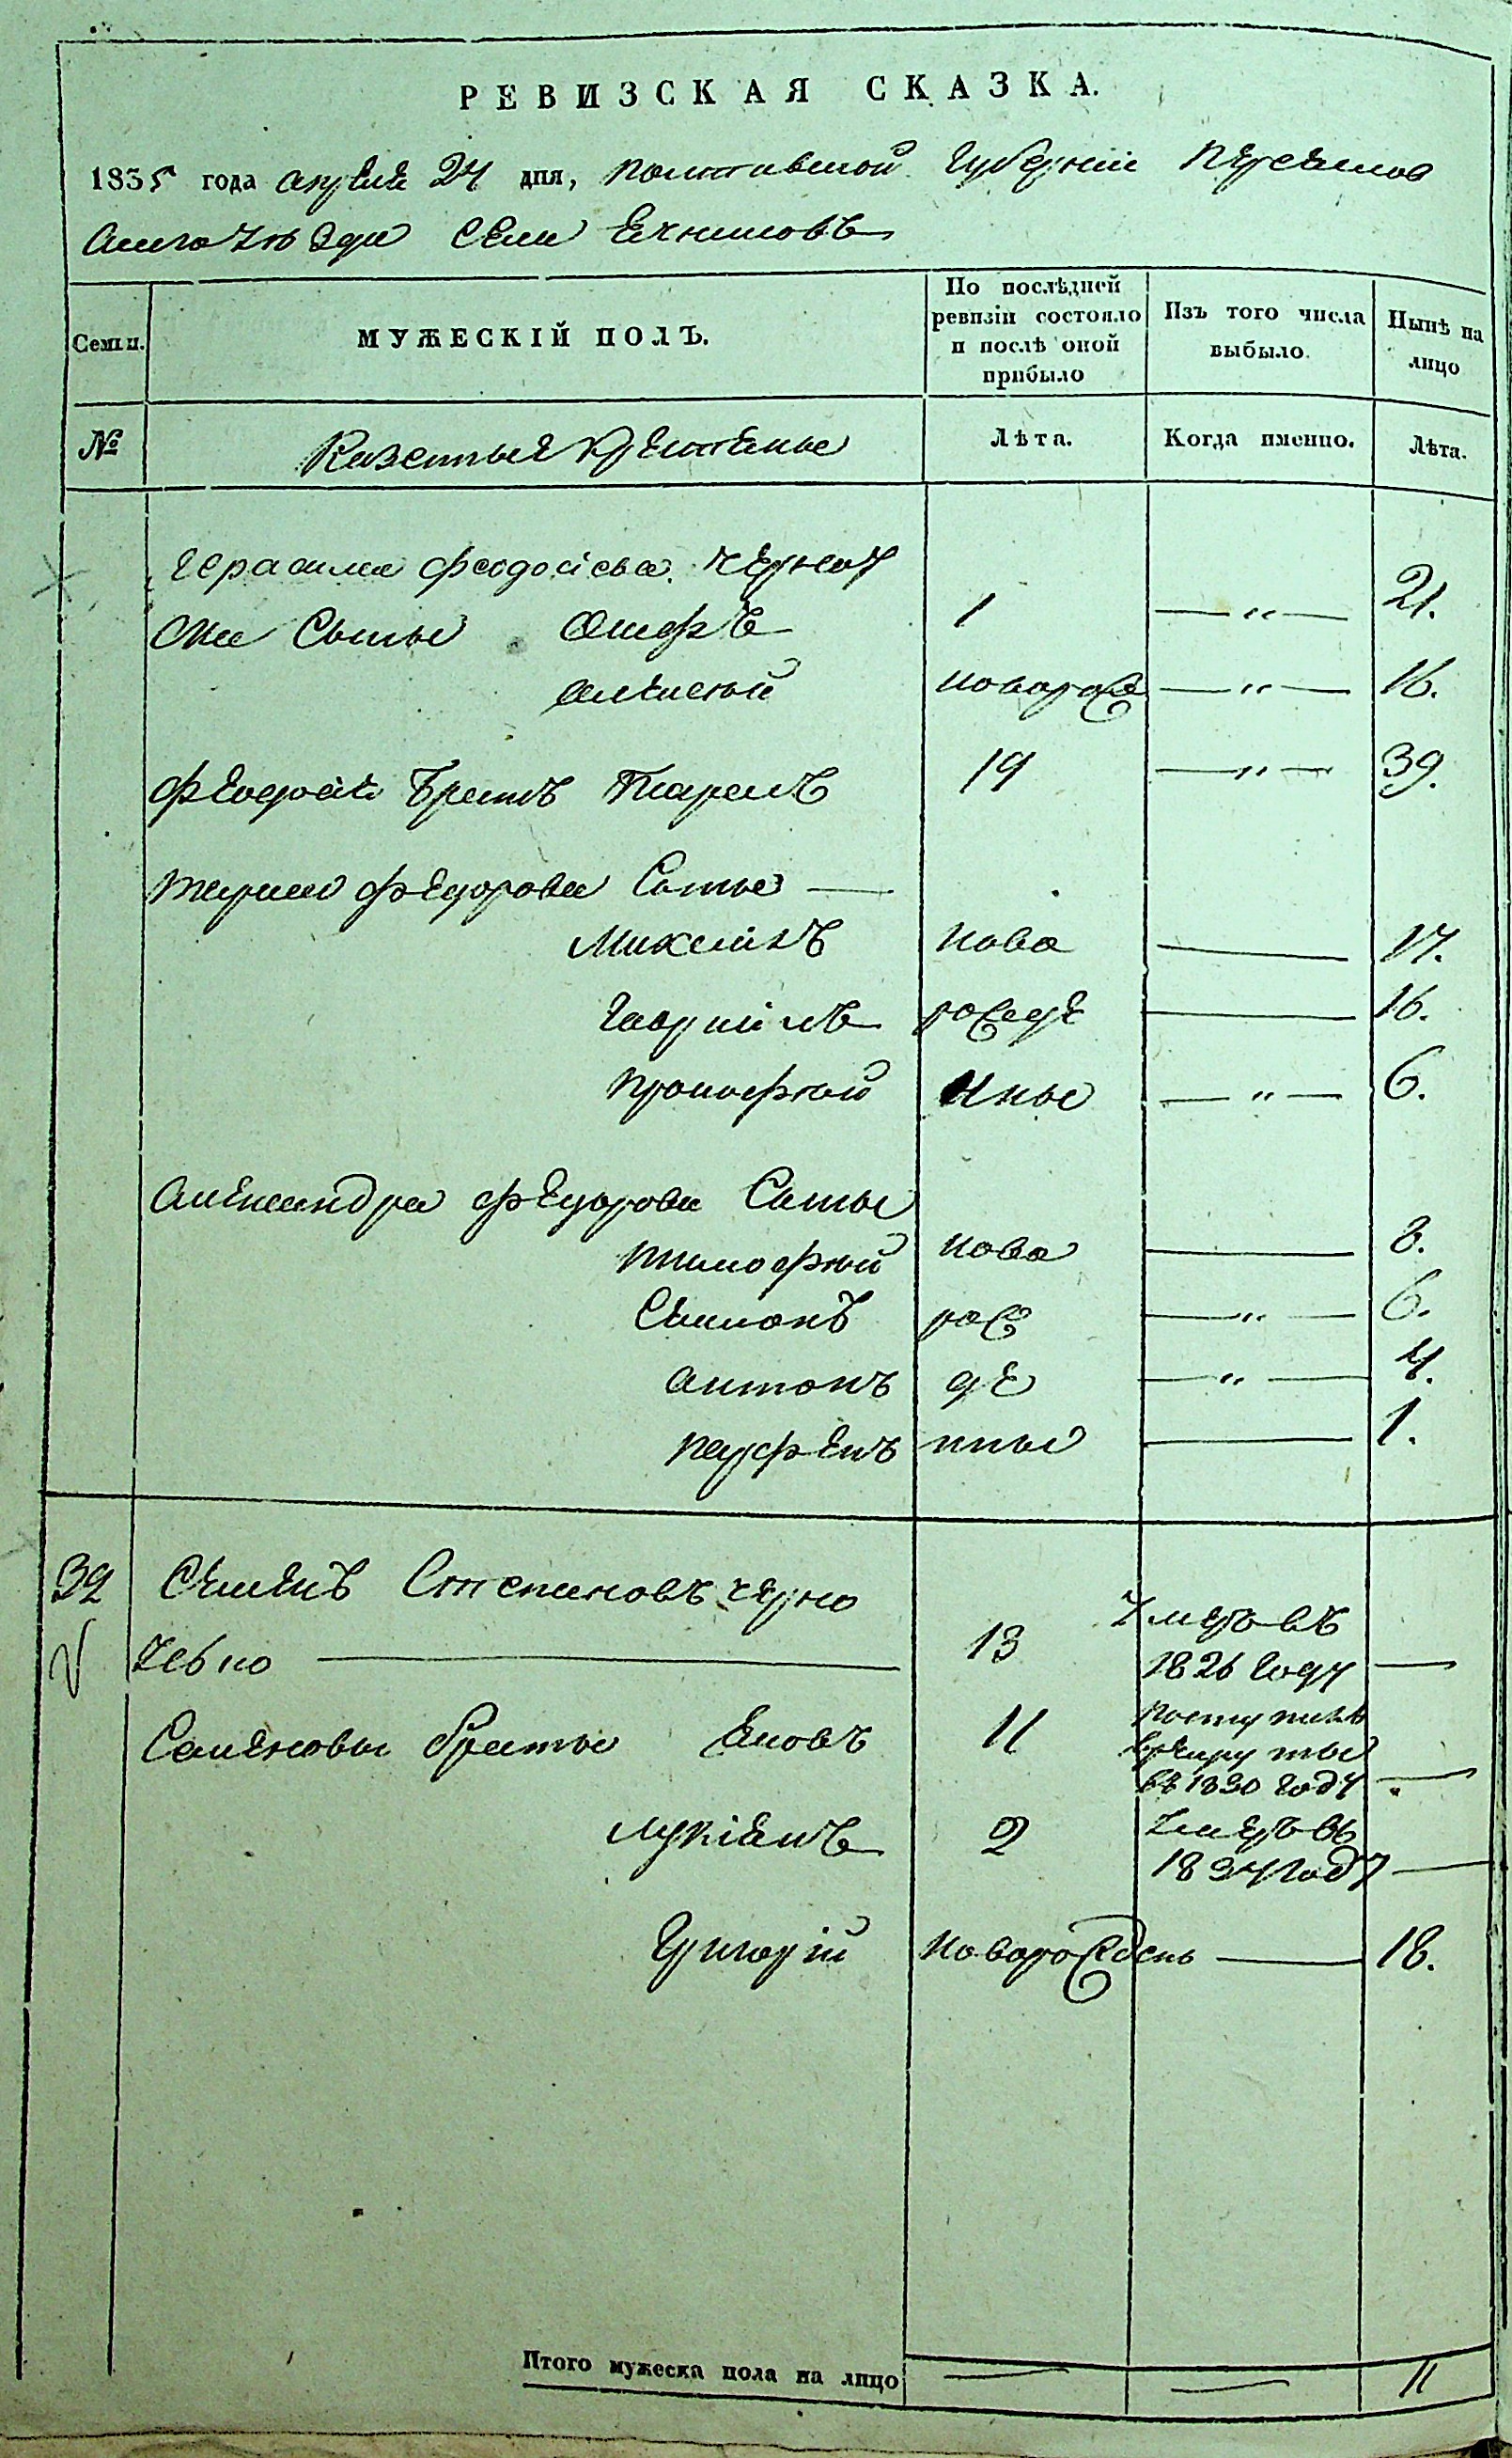 РЕВИЗСКАЯ СКАЗКА.
1835 года апреля 24 дня, Полтавской Губерніи Переяслов
скаго уезда села
Семьи.
МУЖЕСКІЙ ПОЛЪ.
По послѣдней ревизіи состояло и послѣ оной прибыло
Изъ того числа выбыло.
Нынѣ на лицо
№
Казенные крестьяне
Лѣта.
Когда именно.
Лѣта.
Герасима Феодосіева
Сыны Осипъ 1 — " — 21.
Алексей новорож — " — 16.
Феодосія братъ Тарасъ 19 — " — 39.
Тараса Федорова Сыны —
Михаилъ ново — 17.
Гавриилъ рожде — 16.
Прокофей нные — " — 6.
Александра Федорова Сыны
Тимофей ново — 8.
Симонъ рож — " — 6.
Антонъ де — " — 4.
Парфенъ нные — 1.
32 Семенъ Степановъ Черно
13 умеръ въ
1826 году —
Семеновы братья Яковъ 11 поступилъ
врекруты
въ 1830 году —
Лукіанъ 2 умеръ въ
1834 году —
Григорій новорожденъ — 18.
Итого мужеска пола на лицо — — 11